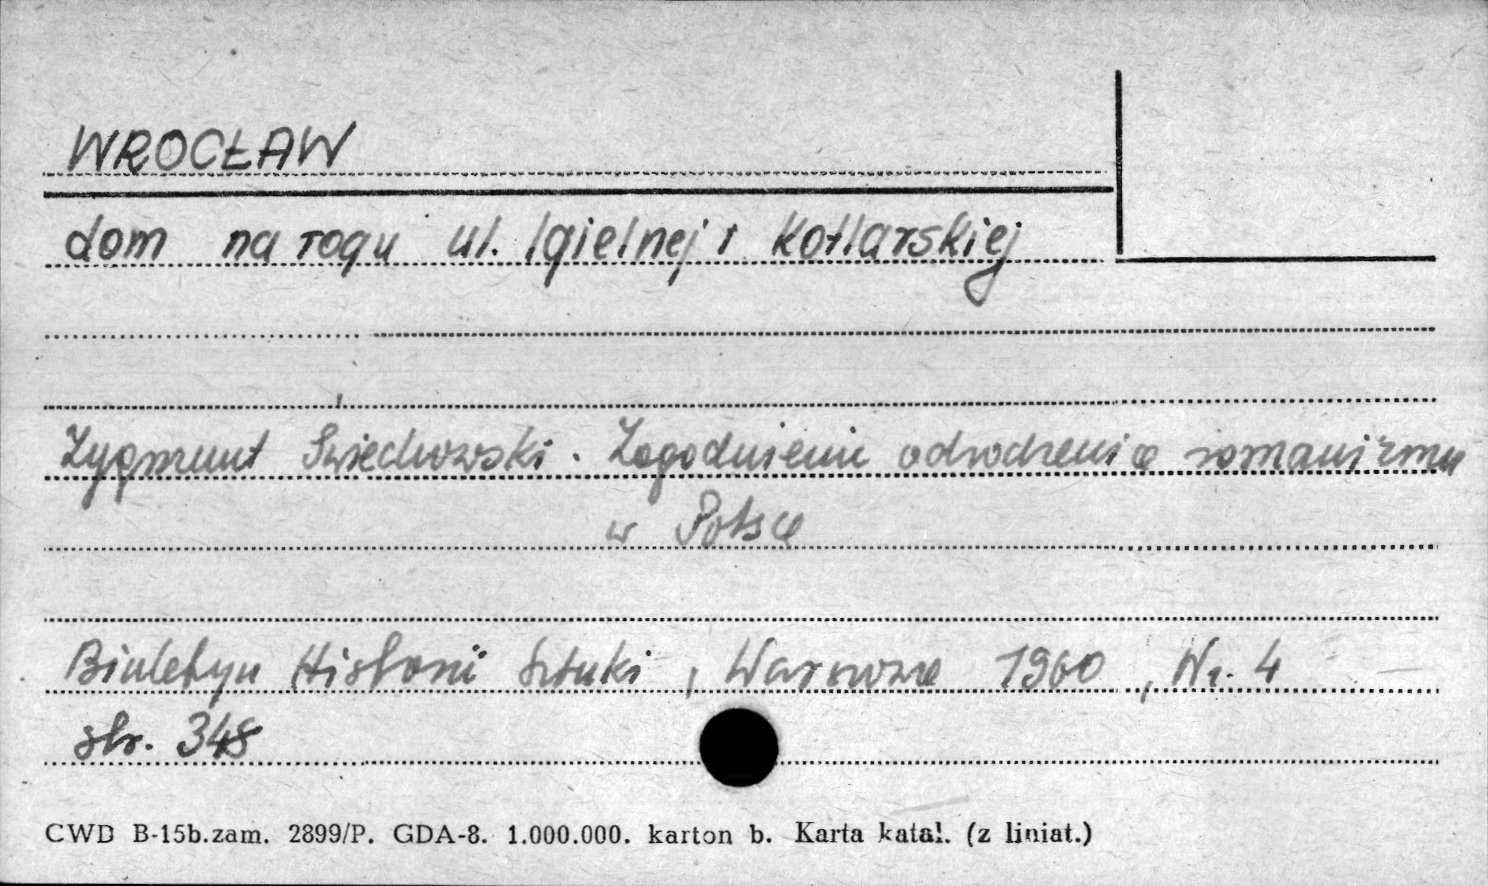 WROCŁAW
dom na rogu ul. Igielnej i Kotlarskiej
Zygmunt Świechowski. Zagadnienie odrodzenia romanizmu
w Polsce
Biuletyn Historii Sztuki, Warszawa 1960, Nr. 4
str. 348
CWD B-15b.zam. 2899/P. GDA-8. 1.000.000. karton b. Karta katal. (z liniat.)